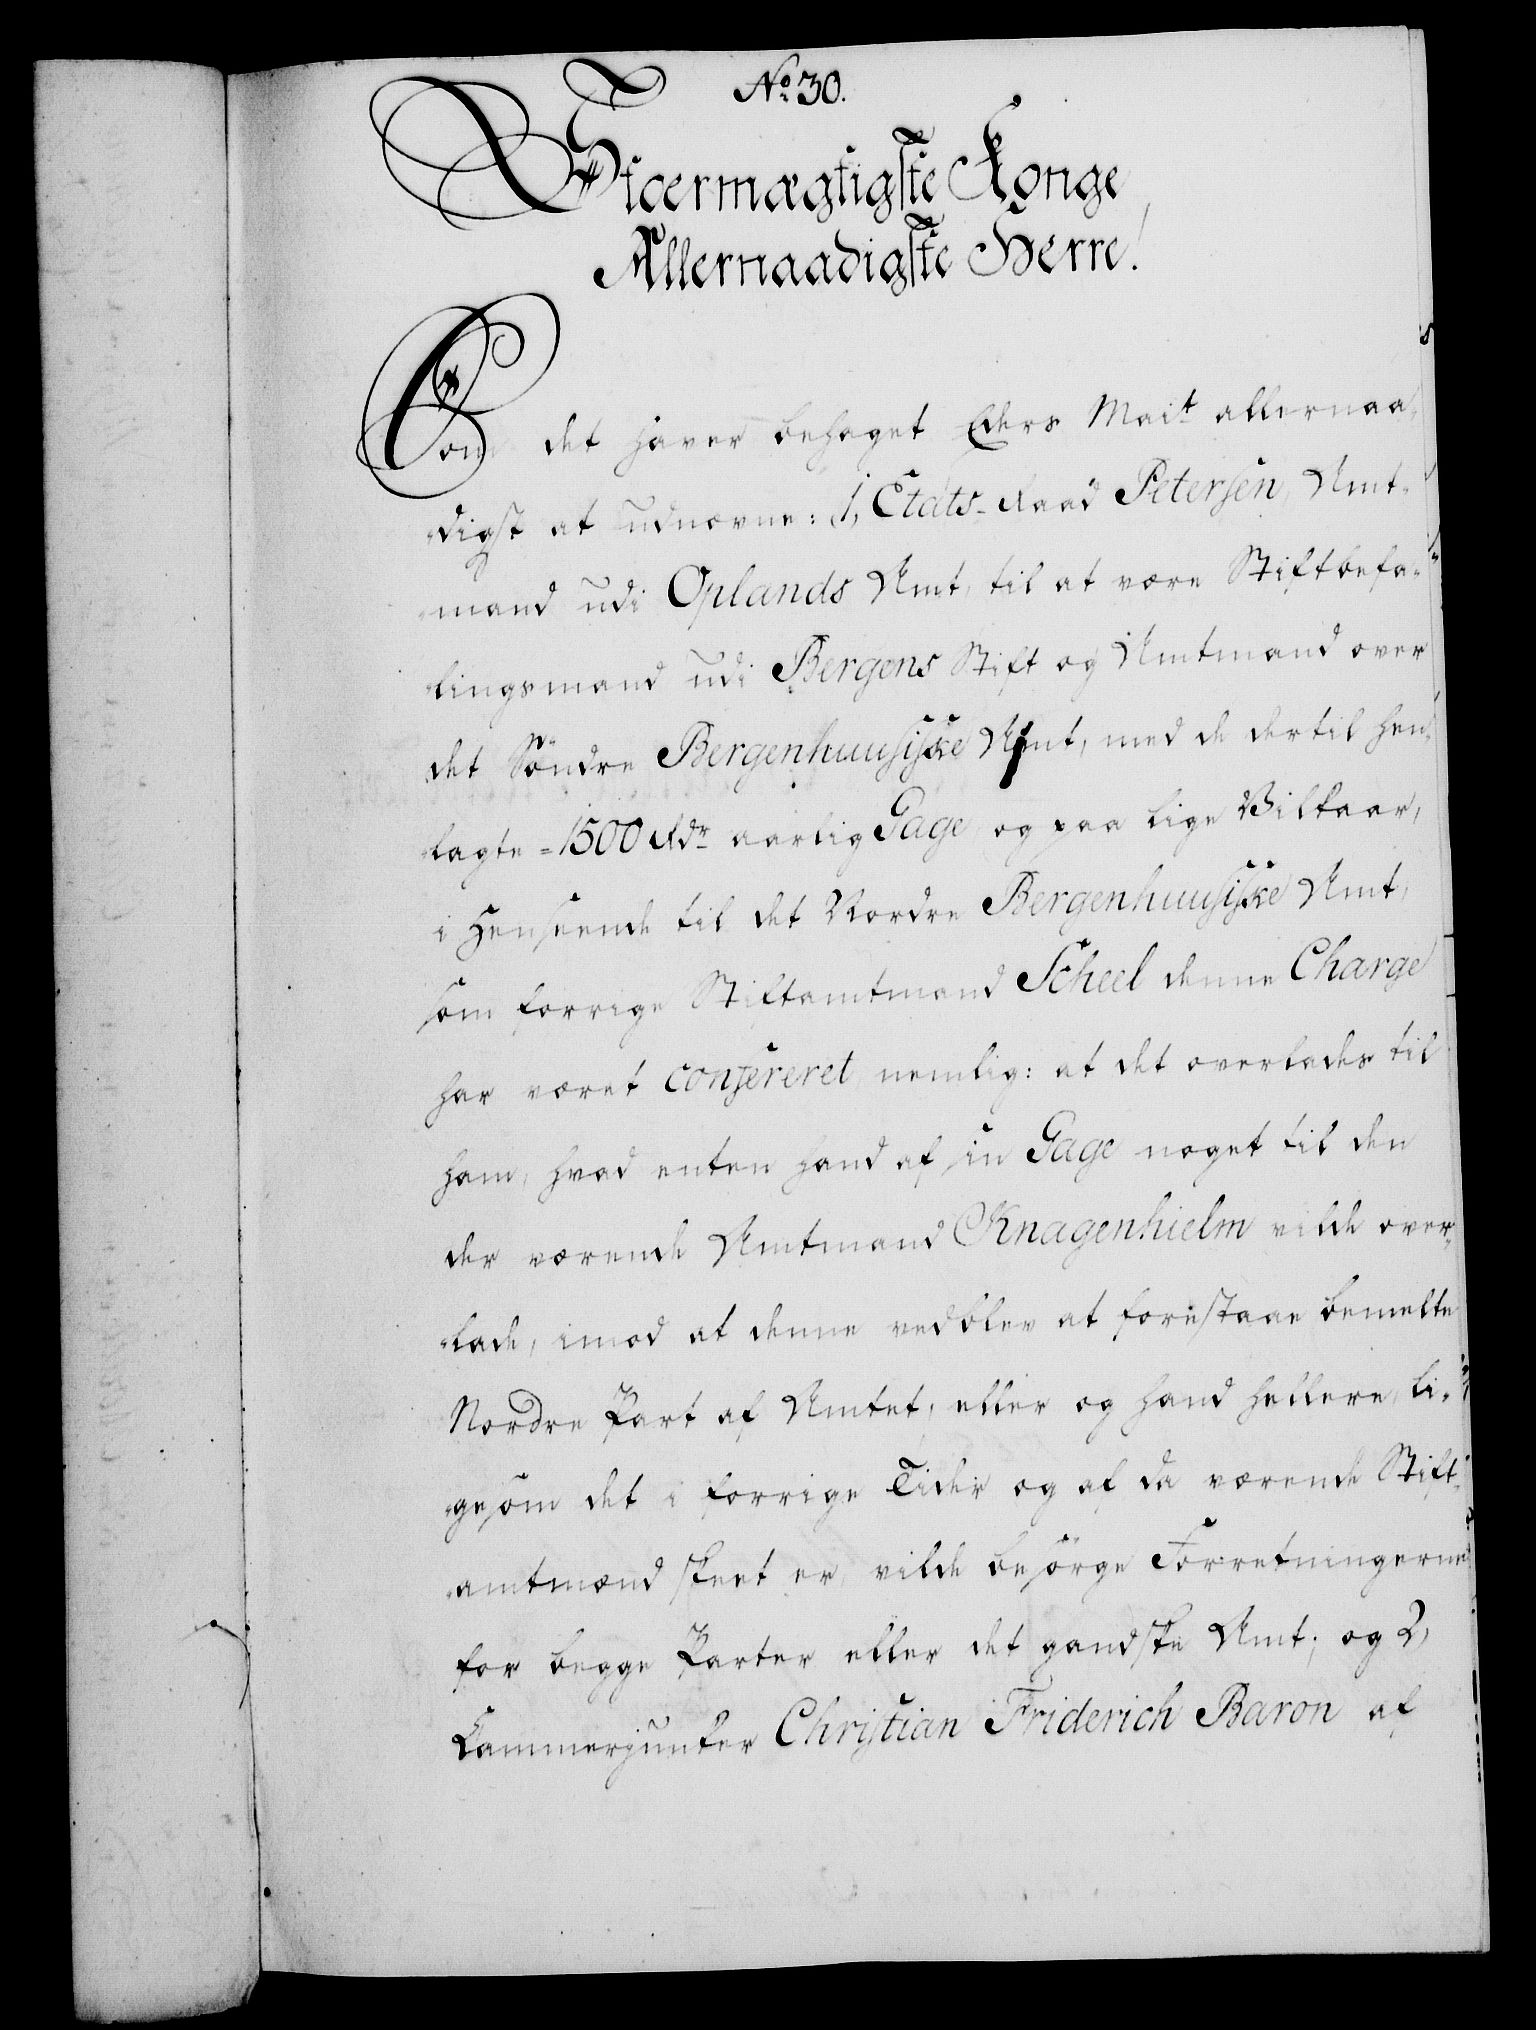 No 30.
Stormægtigste Konge
Allernaadigste Herre!
Som det haver behaget Eders Mait allernaa-
digst at udnævne: 1, Etats-Raad Petersen, Amt-
mand udi Oplands Amt, til at være Stiftbefa-
lingsmand udi Bergens Stift og Amtmand over
det Søndre Bergenhuusiske Amt, med de dertil hen-
lagte 1500 Rdr aarlig Gage og paa lige Vilkaar,
i Henseende til det Nordre Bergenhuusiske Amt,
som forrige Stiftamtmand Scheel denne Charge
har været confereret, nemlig: at det overlades til
ham, hvad enten hand af sin Gage noget til den
der værende Amtmand Knagenhielm vilde over-
lade, imod at denne vedblev at forestaae bemelte
Nordre Part af Amtet, eller og hand hellere, li-
gesom det i forrige Tider og af da værende Stift-
amtmænd skeet er, vilde besørge Forretningerne
for begge Parter eller det gandske Amt; og 2,
Cammerjunker Christian Friderich Baron af